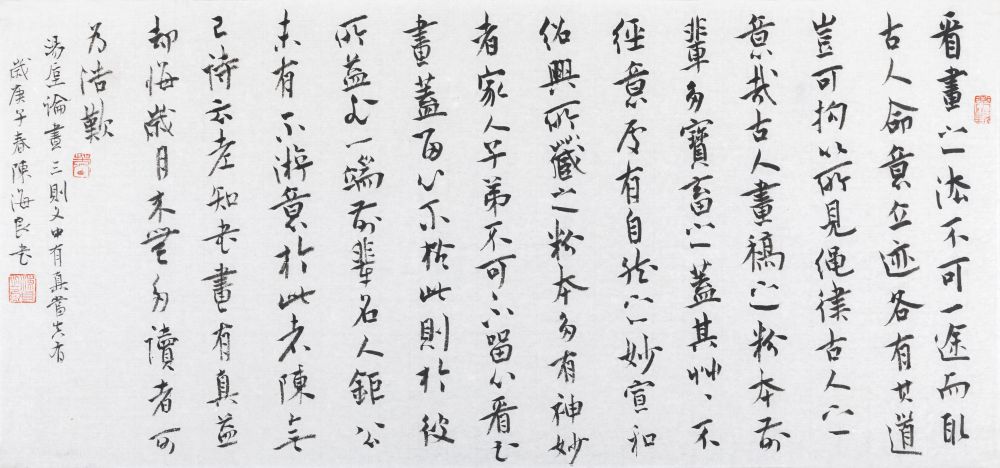 看畫之法不可一途而取
古人命意立迹各有其道
豈可拘以所見繩律古人之
意哉古人畫稿之粉本前
輩多寶畜之蓋其艸艸不
經意處有自然之妙宣和
紹興所藏之粉本多有神妙
者家人子弟不可不留心看
畫蓋留心不於此則於彼
所益一端前輩名人鉅公
未有不游意於此者陳無
己詩云老知書畫有真益
却悔歲月來無多讀者可
为浩歎
湯垕論畫三則文中有真賞
歲庚午春陳海良書